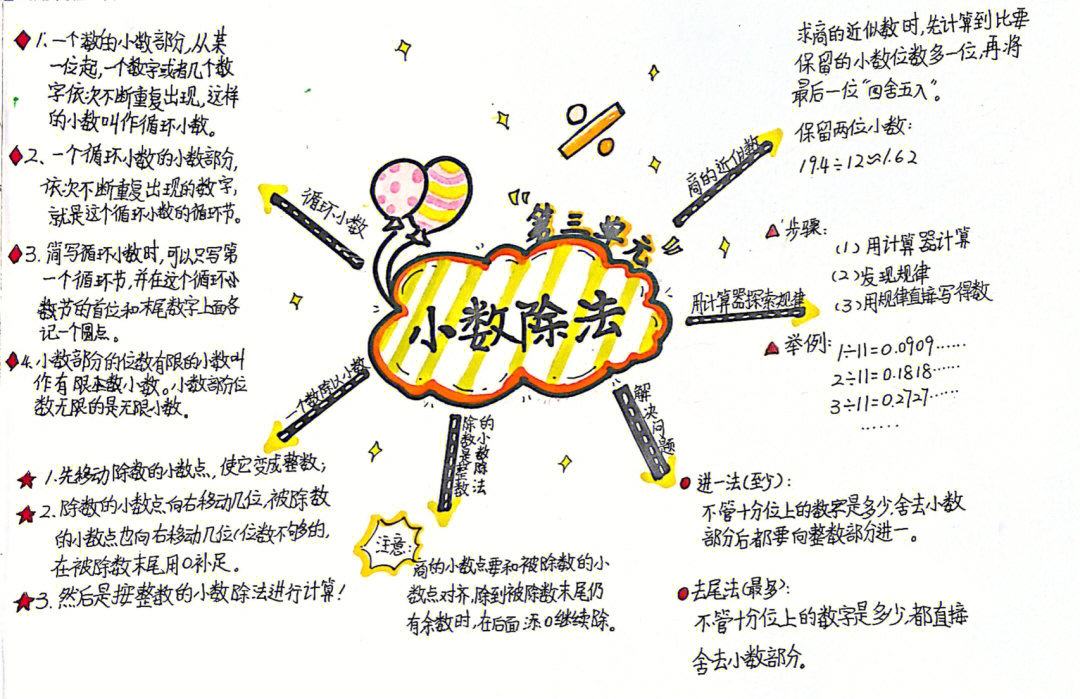 1. 一个数的小数部分,从某
一位起,一个数字或者几个数
字依次不断重复出现,这样
的小数叫作循环小数。
2、一个循环小数的小数部分,
依次不断重复出现的数字,
就是这个循环小数的循环节。
3. 简写循环小数时,可以只写第
一个循环节,并在这个循环小
数节的首位和末尾数字上面各
记一个圆点。
4. 小数部分的位数有限的小数叫
作有限小数。小数部分位
数无限的是无限小数。
循环小数
第三单元
小数除法
商的近似数
求商的近似数时,先计算到比要
保留的小数位数多一位,再将
最后一位“四舍五入”。
保留两位小数:
19.4÷12≈1.62
用计算器探索规律
步骤:
(1) 用计算器计算
(2) 发现规律
(3) 用规律直接写得数
举例: 1÷11=0.0909……
2÷11=0.1818……
3÷11=0.2727……
……
一个数除以小数
1.先移动除数的小数点,使它变成整数;
2. 除数的小数点向右移动几位,被除数
的小数点也向右移动几位(位数不够的,
在被除数末尾用0补足。
3. 然后是按整数的小数除法进行计算!
除数是整数
的小数除法
注意:
商的小数点要和被除数的小
数点对齐,除到被除数末尾仍
有余数时,在后面添0继续除。
解决问题
进一法(至少):
不管十分位上的数字是多少,舍去小数
部分后都要向整数部分进一。
去尾法(最多):
不管十分位上的数字是多少,都直接
舍去小数部分。